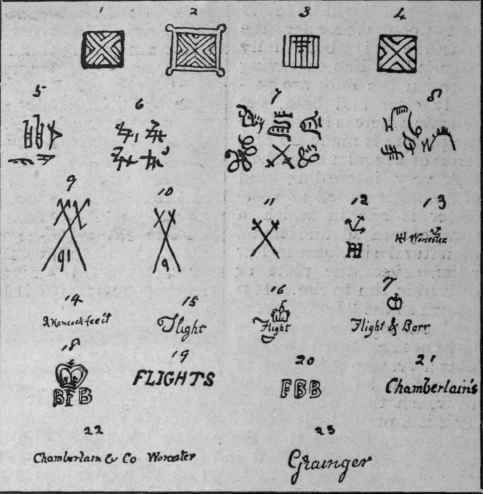 1 2 3 4
5 6 7 8
9 10 11 12 13
91 9 Worcester
14 15 16 7
R Hancock fecit Flight Flight Flight & Barr
18 19 20 21
BFB FLIGHTS FBB Chamberlain's
22 23
Chamberlain & Co Worcester Grainger